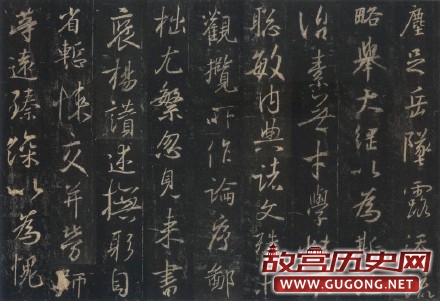 塵足岳墜露添
略舉大綱以為斯
治素無才學
聡敏内典諸文殊
觀攬所作論序鄙
拙尤繁忽見来書
褒揚讃述撫躬自
省慙悚交并勞師
等遠臻深以為愧
故宫历史网
WWW.GUGONG.NET